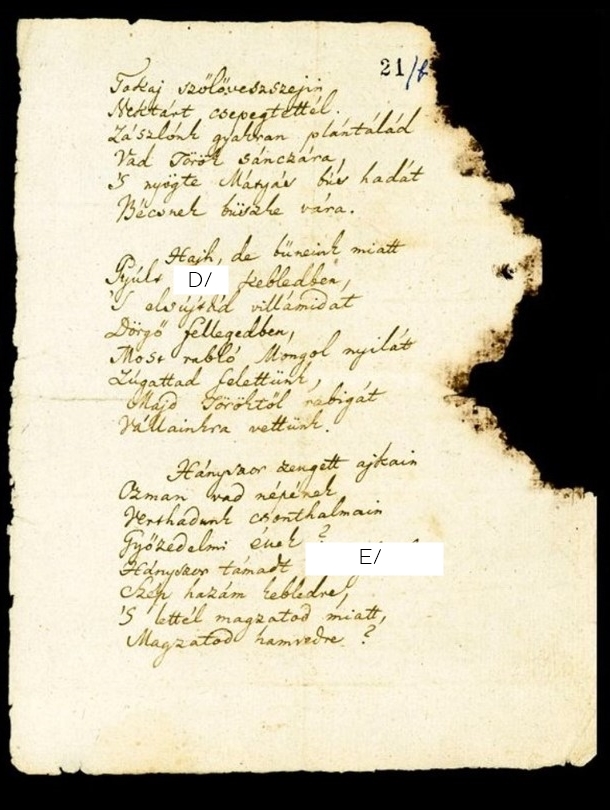 21/b
Tokaj szőlővesszejin
Nektárt csepegtettél.
Zászlónk gyakran plántálád
Vad Török sánczára,
'S nyögte Mátyás bús hadát
Bécsnek büszke vára.
Hajh, de bűneink miatt
Gyúlt D/ kebledben,
'S elsújtád villámidat
Dörgő fellegedben,
Most rabló Mongol nyilát
Zúgattad felettünk,
Majd Töröktől rabigát
Vállainkra vettünk.
Hányszor zengett ajkain
Ozman vad népének
Vert hadunk csonthalmain
Győzedelmi ének?
Hányszor támadt E/
Szép hazám kebledre,
'S lettél magzatod miatt,
Magzatod hamvedre?